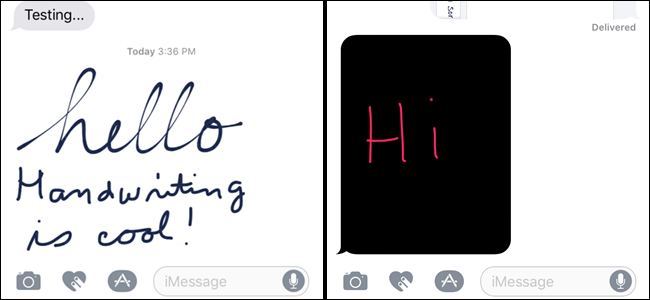 Testing...
Today 3:36 PM
hello
Handwriting
is cool!
iMessage
Delivered
Hi
iMessage